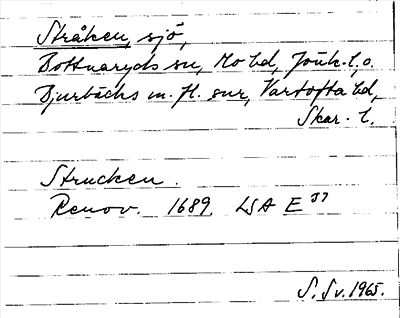 Stråken, sjö,
Bottnaryds sn, Mo hd, Jönk. l, o.
Djurbäcks m. fl. snr, Vartofta hd,
Skar. l.
Strucken.
Renov. 1689. LSA E 37
S. Sv. 1965.